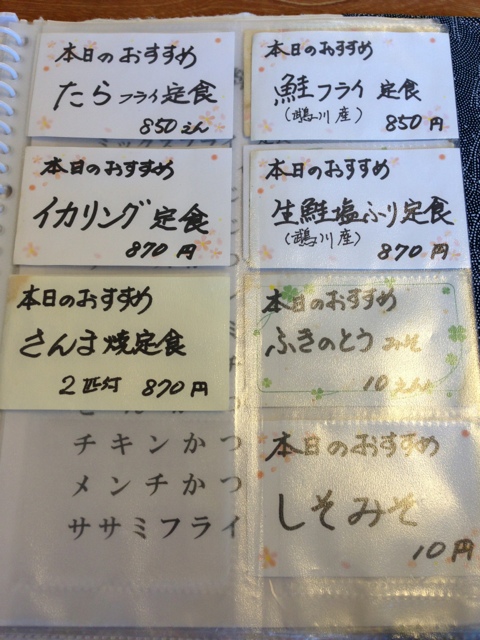 本日のおすすめ
たらフライ定食
850えん
本日のおすすめ
鮭フライ定食
(鵡川産)
850円
本日のおすすめ
イカリング定食
870円
本日のおすすめ
生鮭塩ふり定食
(鵡川産)
870円
本日のおすすめ
さんま焼定食
2匹付 870円
本日のおすすめ
ふきのとうみそ
10えん
本日のおすすめ
しそみそ
10円
チキンかつ
メンチかつ
ササミフライ